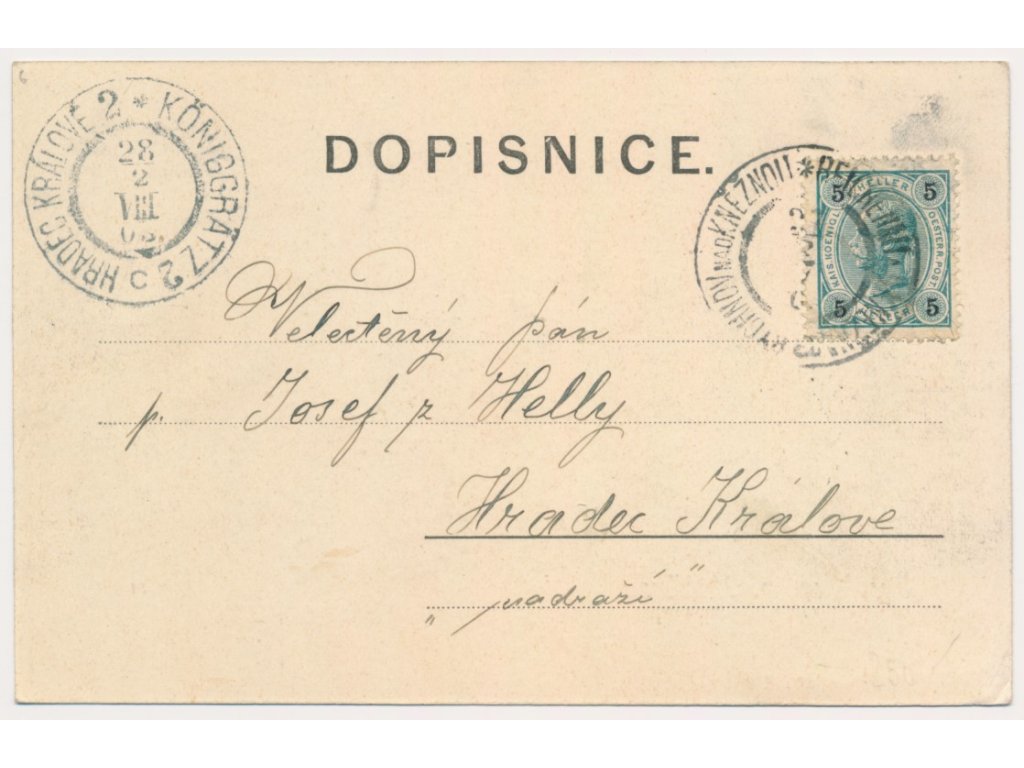 6
HRADEC KRÁLOVÉ 2 * KÖNIGGRÄTZ 2
28
2
VIII
C
DOPISNICE.
RYCHNOV NAD KNĚŽNOU *
5 HELLER 5
KAIS. KOENIGL.
OESTERR. POST
5 HELLER 5
Velectěný pán
p. Josef z Helly
Hradec Králove
„nadraží“